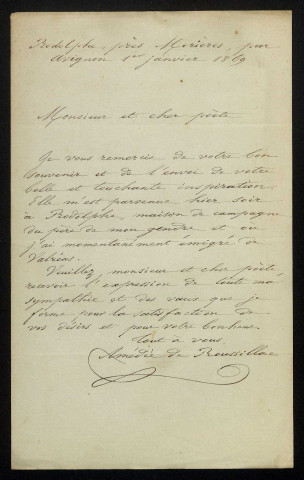 Rodolphe, près Morières, par
Avignon 1er janvier 1869
Monsieur et cher poëte
Je vous remercie de votre bon
souvenir et de l'envoi de votre
belle et touchante inspiration.
Elle m'est parvenue hier soir
à Rodolphe, maison de campagne
du père de mon gendre et où
j'ai momentanément émigré de
Valréas.
Veuillez, monsieur et cher poëte
recevoir l'expression de toute ma
sympathie et des vœux que je
forme pour la satisfaction de
vos désirs et pour votre bonheur.
tout à vous.
Amédée de Roussillac